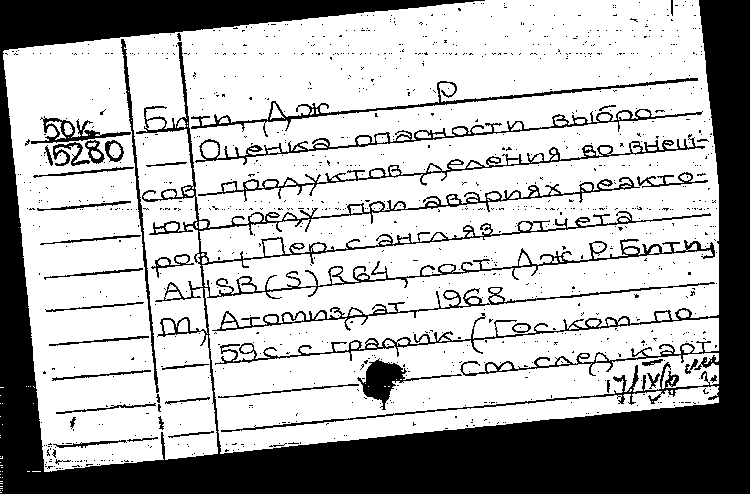 Бити, Дж Р
50к
15280
Оценка опасности выбро-
сов продуктов деления во внеш-
нюю среду при авариях реакто-
ров. Пер. с англ. яз. отчета
AHSB (S) R64, сост. Дж. Р. Бити,
М., Атомиздат, 1968.
59 с. с график. (Гос. ком. по
См. след. карт.
17/IV